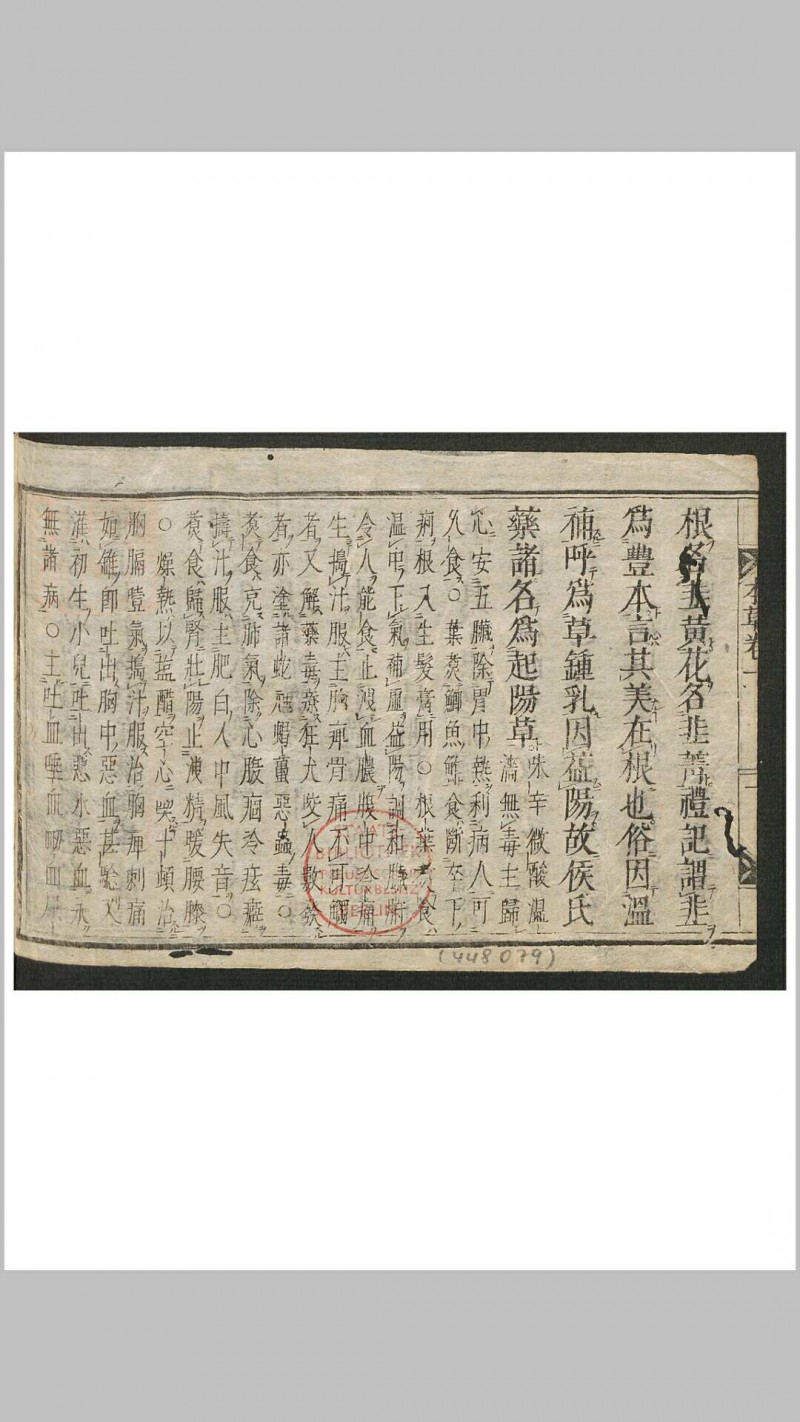 根名韭黃花名韭菁禮記謂韭
爲豐本言其美在根也俗因溫
補呼爲草鍾乳因益陽故侯氏
藥諸名爲起陽草
味辛微酸溫
濇無毒主歸
心安五臟除胃中熱利病人可
久食○葉煑鯽魚鮓食斷卒下
痢根入生髮膏用○根葉煑食
温中下氣補虛益陽調和臟腑
令人能食止洩血膿腹中冷痛
生搗汁服主胸痹骨痛不可觸
者又解藥毒療狂犬咬人數發
者亦塗諸蛇虺蝎蠆惡蟲毒○
煑食充肺氣除心腹痼冷痃癖
擣汁服主肥白人中風失音○
煑食歸腎壯陽止洩精暖腰膝
○煠熟以盐醋空心喫十頓治
胸膈噎氣搗汁服治胸痹刺痛
如錐卽吐出胸中惡血甚驗又
灌初生小兒吐出惡水惡血永
無諸病○主吐血唾血衂血尿
本草卷一
(448079)